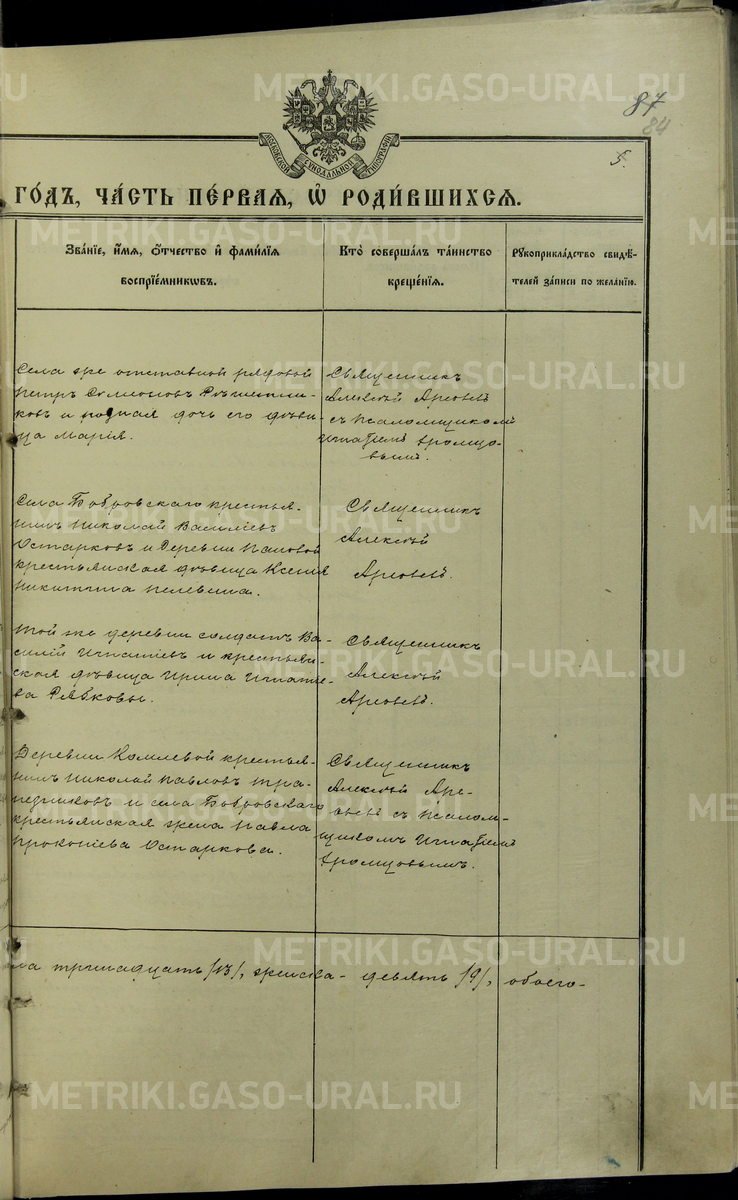 METRIKI.GASO-URAL.RU
87
84
5.
МОСКОВСКОЙ СѴНОДАЛЬНОЙ ТИПОГРАФІИ
ГО́ДЪ, ЧА́СТЬ ПЕ́РВАЯ, Ѿ РОДИ́ВШИХСЯ.
Зва́нїе, и́мя, ѻ҆́тчество и҆ фами́лїя
воспрїе́мникѡвъ.
Кто̀ соверша́лъ та́инство
креще́нїя.
Рꙋкоприкла́дство свидѣ́-
телей за́писи по жела́нїю.
Села же отставной рядовой
Петръ Симеоновъ Рѣшетни-
ковъ и родная дочь его дѣви-
ца Марія.
Священникъ
Алексѣй
съ псаломщикомъ
Игнатіемъ Громцо-
вымъ.
Села Бобровскаго крестья-
нинъ Николай Василіевъ
Остарковъ и Деревни
крестьянская дѣвица Ксенія
Никитина Пелевина.
Священникъ
Алексѣй
Той же деревни солдатъ Ва-
силій Игнатіевъ и крестьян-
ская дѣвица Ирина Игнатіе-
ва Рябковы.
Священникъ
Алексѣй
Деревни Комлевой крестья-
нинъ Николай Павловъ Тра-
пезниковъ и села Бобровскаго
крестьянская жена Павла
Прокопіева Остаркова.
Священникъ
Алексѣй
съ псалом-
щикомъ Игнатіемъ
Громцовымъ.
ла тринадцать /13/, женска- девять /9/, обоего-